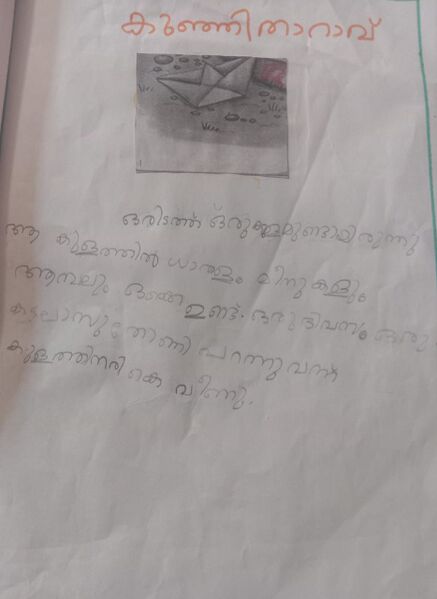 കുഞ്ഞിതാറാവ്
ഒരിടത്ത് ഒരുകുളമുണ്ടായിരുന്നു
ആ കുളത്തിൽ ധാരാളം മീനുകളും
ആമ്പലും ഒക്കെ ഉണ്ട്. ഒരുദിവസം ഒരു
കടലാസു തോണി പറന്നുവന്ന്
കുളത്തിനരികെ വീണു.